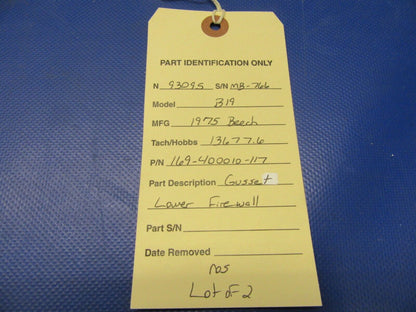 PART IDENTIFICATION ONLY
N 93095 S/N MB-766
Model B19
MFG 1975 Beech
Tach/Hobbs 13677.6
P/N 169-400010-117
Part Description Gusset
Lower Firewall
Part S/N
Date Removed
nos
Lot of 2